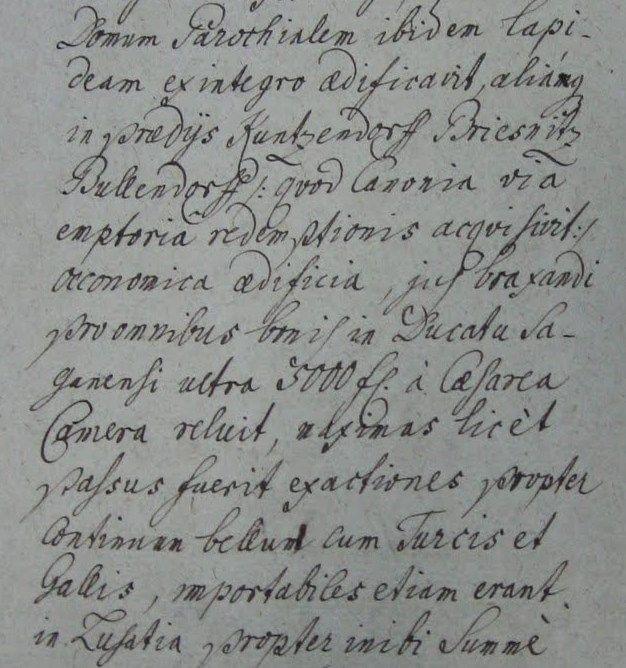 Domum Parochialem ibidem lapi-
deam ex integro ædificavit, aliáq
in prædijs Kuntzendorff Briesnitz
Bullendorff /: quod Canonia viâ
emptoria redemptionis acquisivit :/
œconomica ædificia, jus braxandi
pro omnibus bonis in Ducatu Sa-
ganensi ultra 5000 fl. à Cæsarea
Camera reluit, maximas licèt
passus fuerit exactiones propter
continuum bellum cum Turcis et
Gallis, importabiles etiam erant
in Lusatia propter inibi Summè